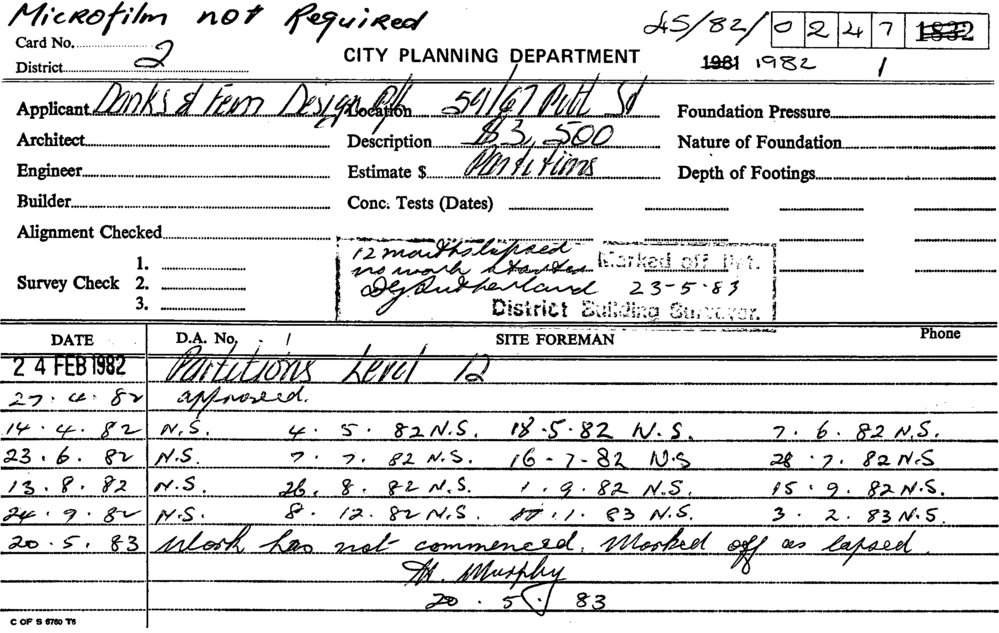 Microfilm not Required 45/82/ 0 2 4 7 1832
Card No. 2 CITY PLANNING DEPARTMENT 1981 1982 1
District
Applicant Danks & Fern Design P/L Location 59/67 Pitt St Foundation Pressure
Architect Description $3,500 Nature of Foundation
Engineer Estimate $ Partitions Depth of Footings
Builder Conc. Tests (Dates)
Alignment Checked
12 months lapsed
no work started Marked off Prt.
Survey Check 1. 2. 3. Sutherland 23-5-83
District Building Surveyor.
DATE D.A. No. / SITE FOREMAN Phone
24 FEB 1982 Partitions Level 12
27.4.82 approved.
14.4.82 N.S. 4.5.82 N.S. 18.5.82 N.S. 7.6.82 N.S.
23.6.82 N.S. 7.7.82 N.S. 16-7-82 N.S 28.7.82 N.S
13.8.82 N.S. 26.8.82 N.S. 1.9.82 N.S. 15.9.82 N.S.
24.9.82 N.S. 8.12.82 N.S. .1.83 N.S. 3.2.83 N.S.
20.5.83 Work has not commenced. Marked off as lapsed.
M. Murphy
20.5.83
C OF S 6760 T6